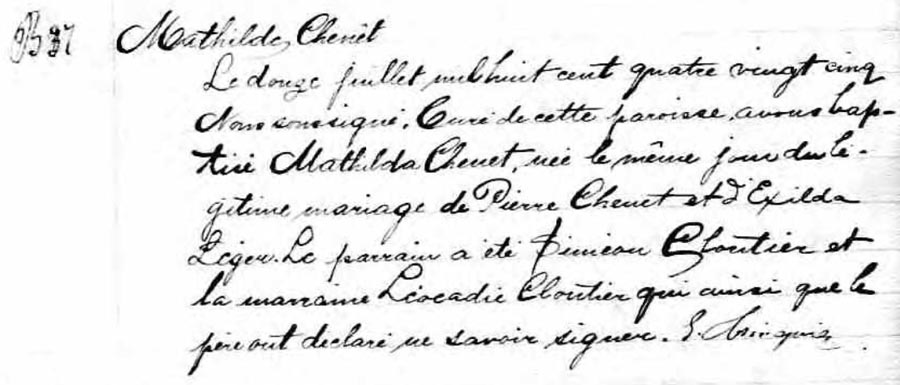 B 37 Mathilde Chenêt
Le douze juillet mil huit cent quatre vingt cinq
Nous soussigné, Curé de cette paroisse avons bap-
tisé Mathilda Chenet, née le même jour du lé-
gitime mariage de Pierre Chenet et d'Exilda
Léger. Le parrain a été Siméon Cloutier et
la marraine Léocadie Cloutier qui ainsi que le
père ont déclaré ne savoir signer.